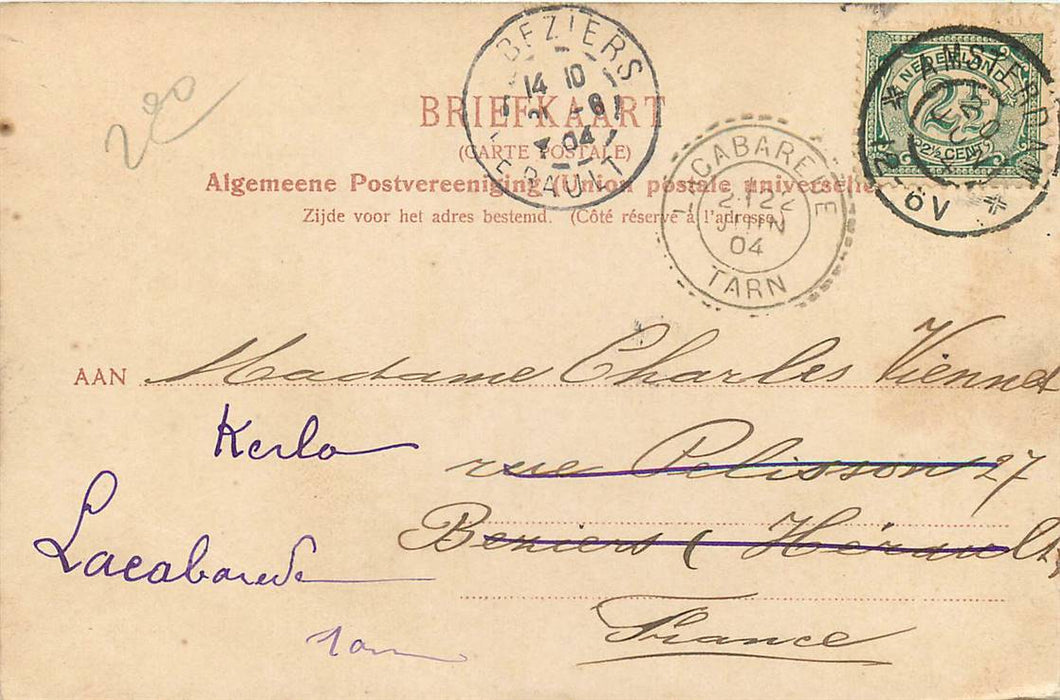 200
BEZIERS
14 10
21 -6
04
HERAULT
NEDERLAND
2½
2½ CENT
AMSTERDAM
6V
BRIEFKAART
(CARTE POSTALE)
Algemeene Postvereeniging (Union postale universelle)
Zijde voor het adres bestemd. (Côté réservé à l'adresse.)
LACABAREDE
22
JUIN
04
TARN
AAN Madame Charles Viennet
Kerlo
rue Pelisson 27
Beziers (Hérault)
Lacabarede
France
Tarn